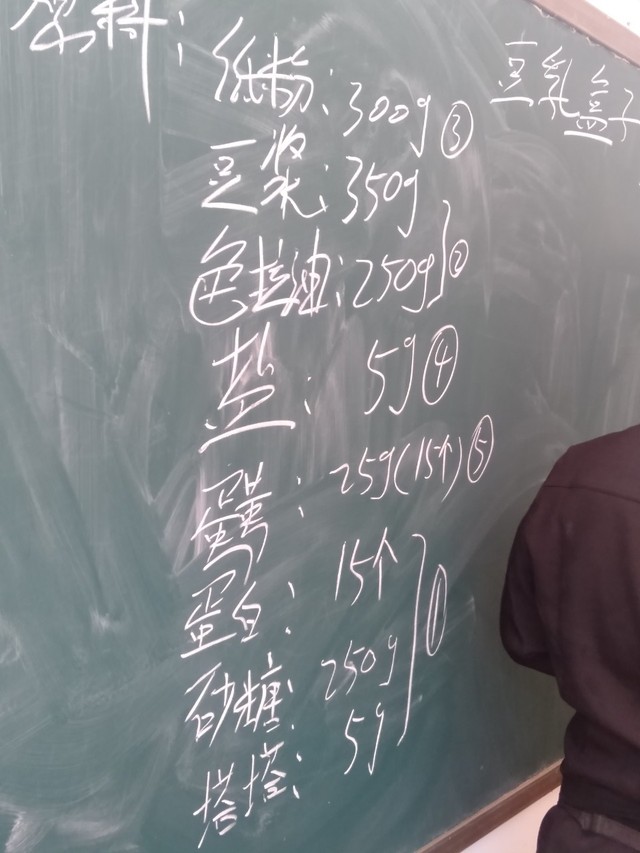 原料:
豆乳盒子
低粉: 300g ③
豆浆: 350g
色拉油: 250g ②
盐: 5g ④
蛋黄: 25g(15个) ⑤
蛋白: 15个
砂糖: 250g ①
塔塔: 5g